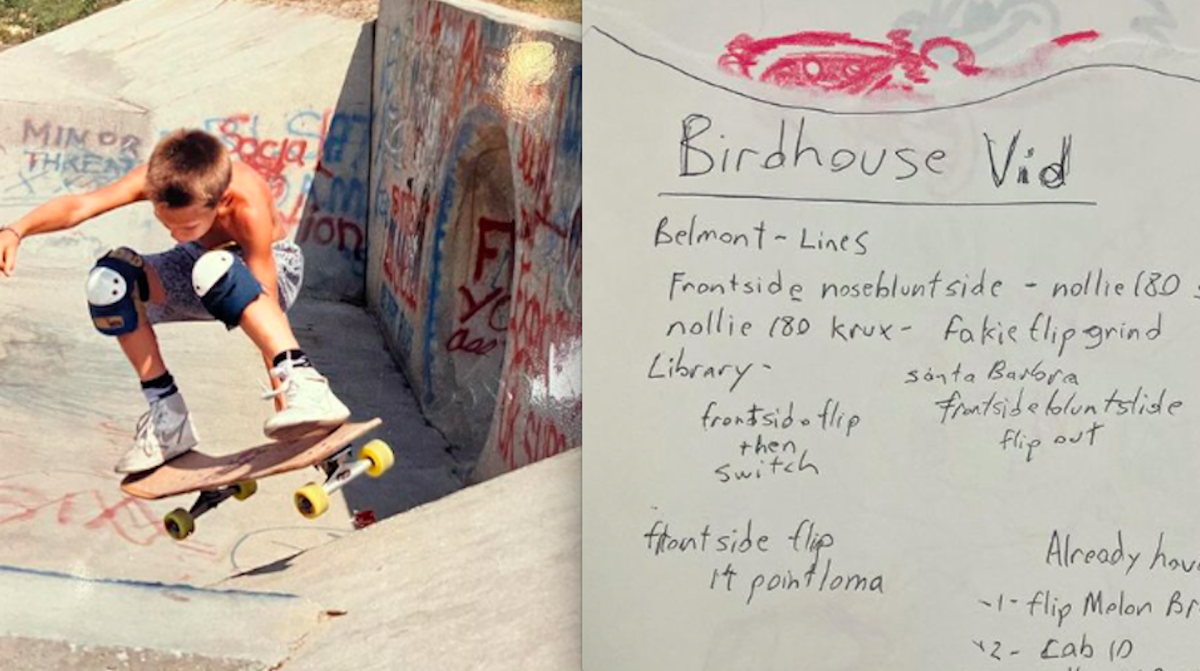 MINOR
THREAT
Social
tion
Birdhouse Vid
Belmont - Lines
Frontside nosebluntside - nollie 180
nollie 180 krux - fakie flip grind
Library -
santa Barbra
frontside flip
then
switch
frontside bluntslide
flip out
frontside flip
14 point loma
Already hav
-1- flip Melon Br
2 - Cab